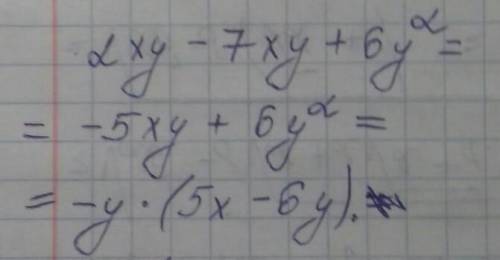 2xy - 7xy + 6y² =
= -5xy + 6y² =
= -y · (5x - 6y).